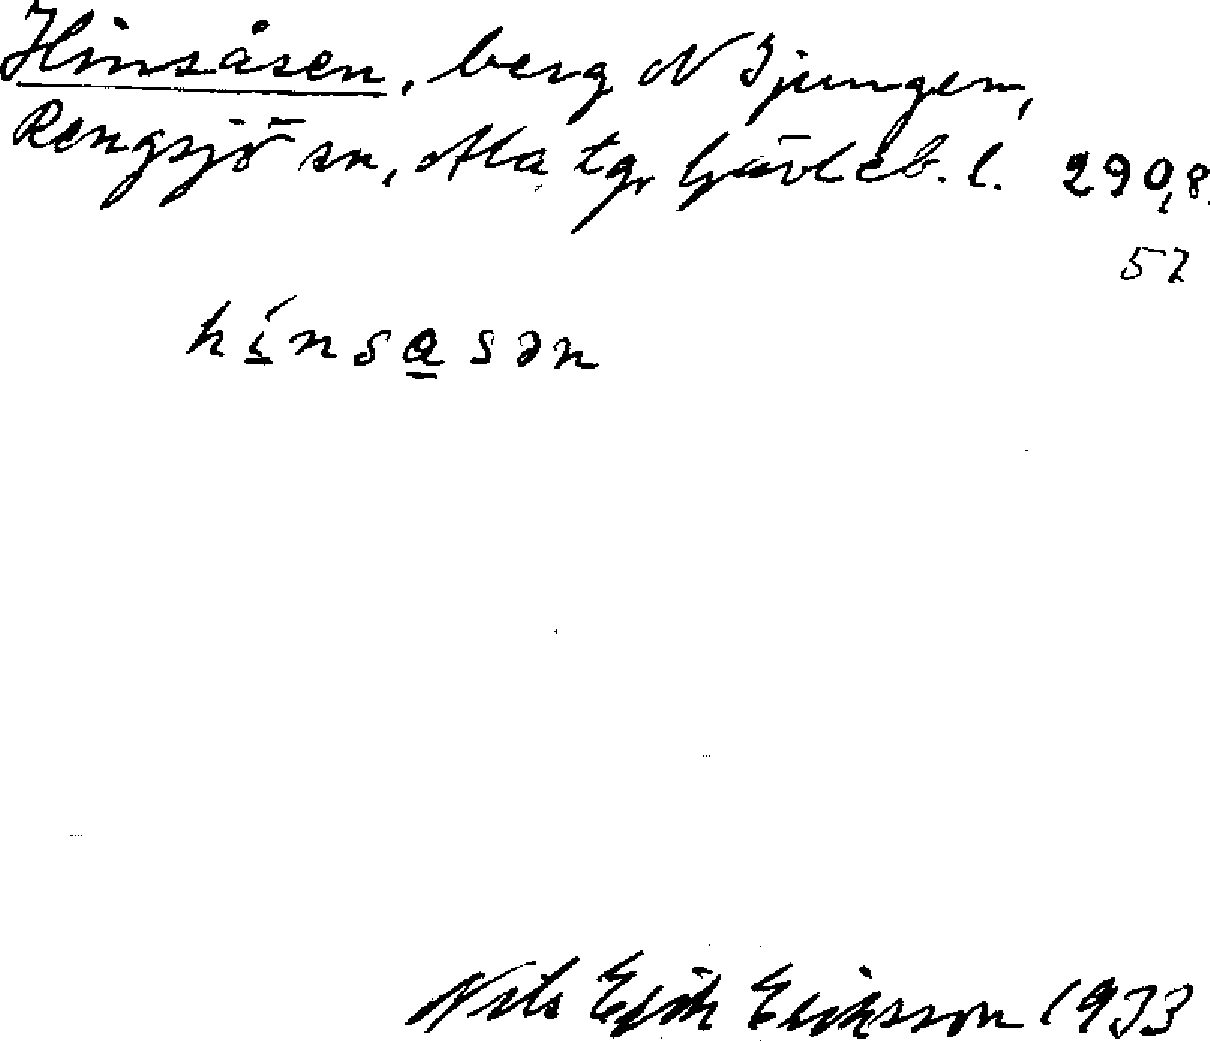 Hinsåsen, berg N Ljungen,
Rengsjö sn, Ala tg, Gävleb. l. 290,8.
57
hínsasən
Nils Erik Eriksson 1933